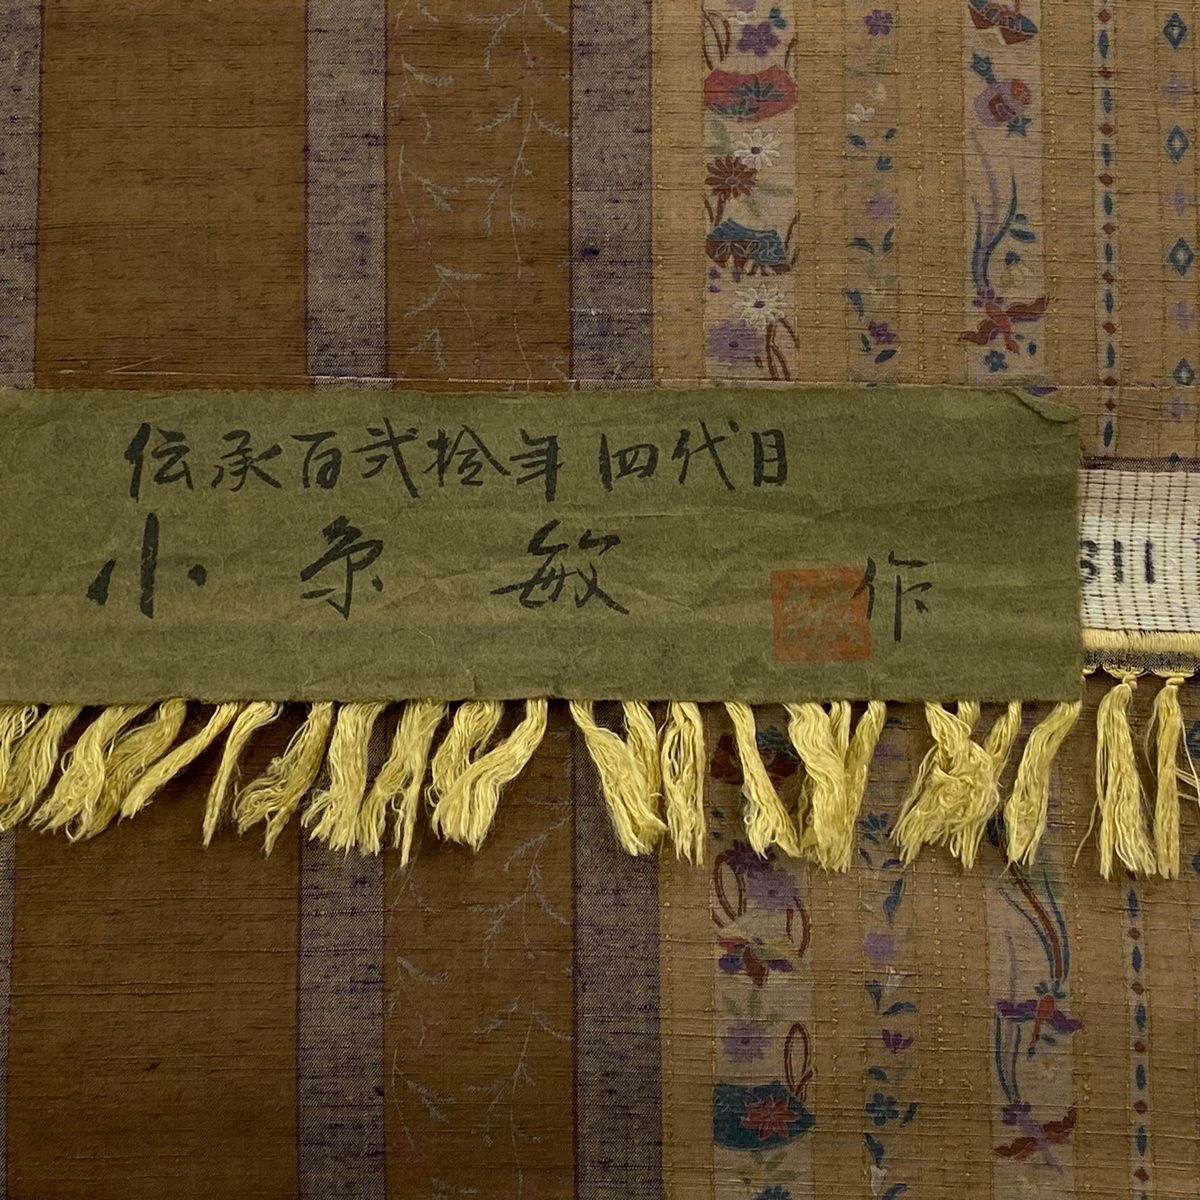 伝承百弐拾年 四代目
小糸 敏 作
S11